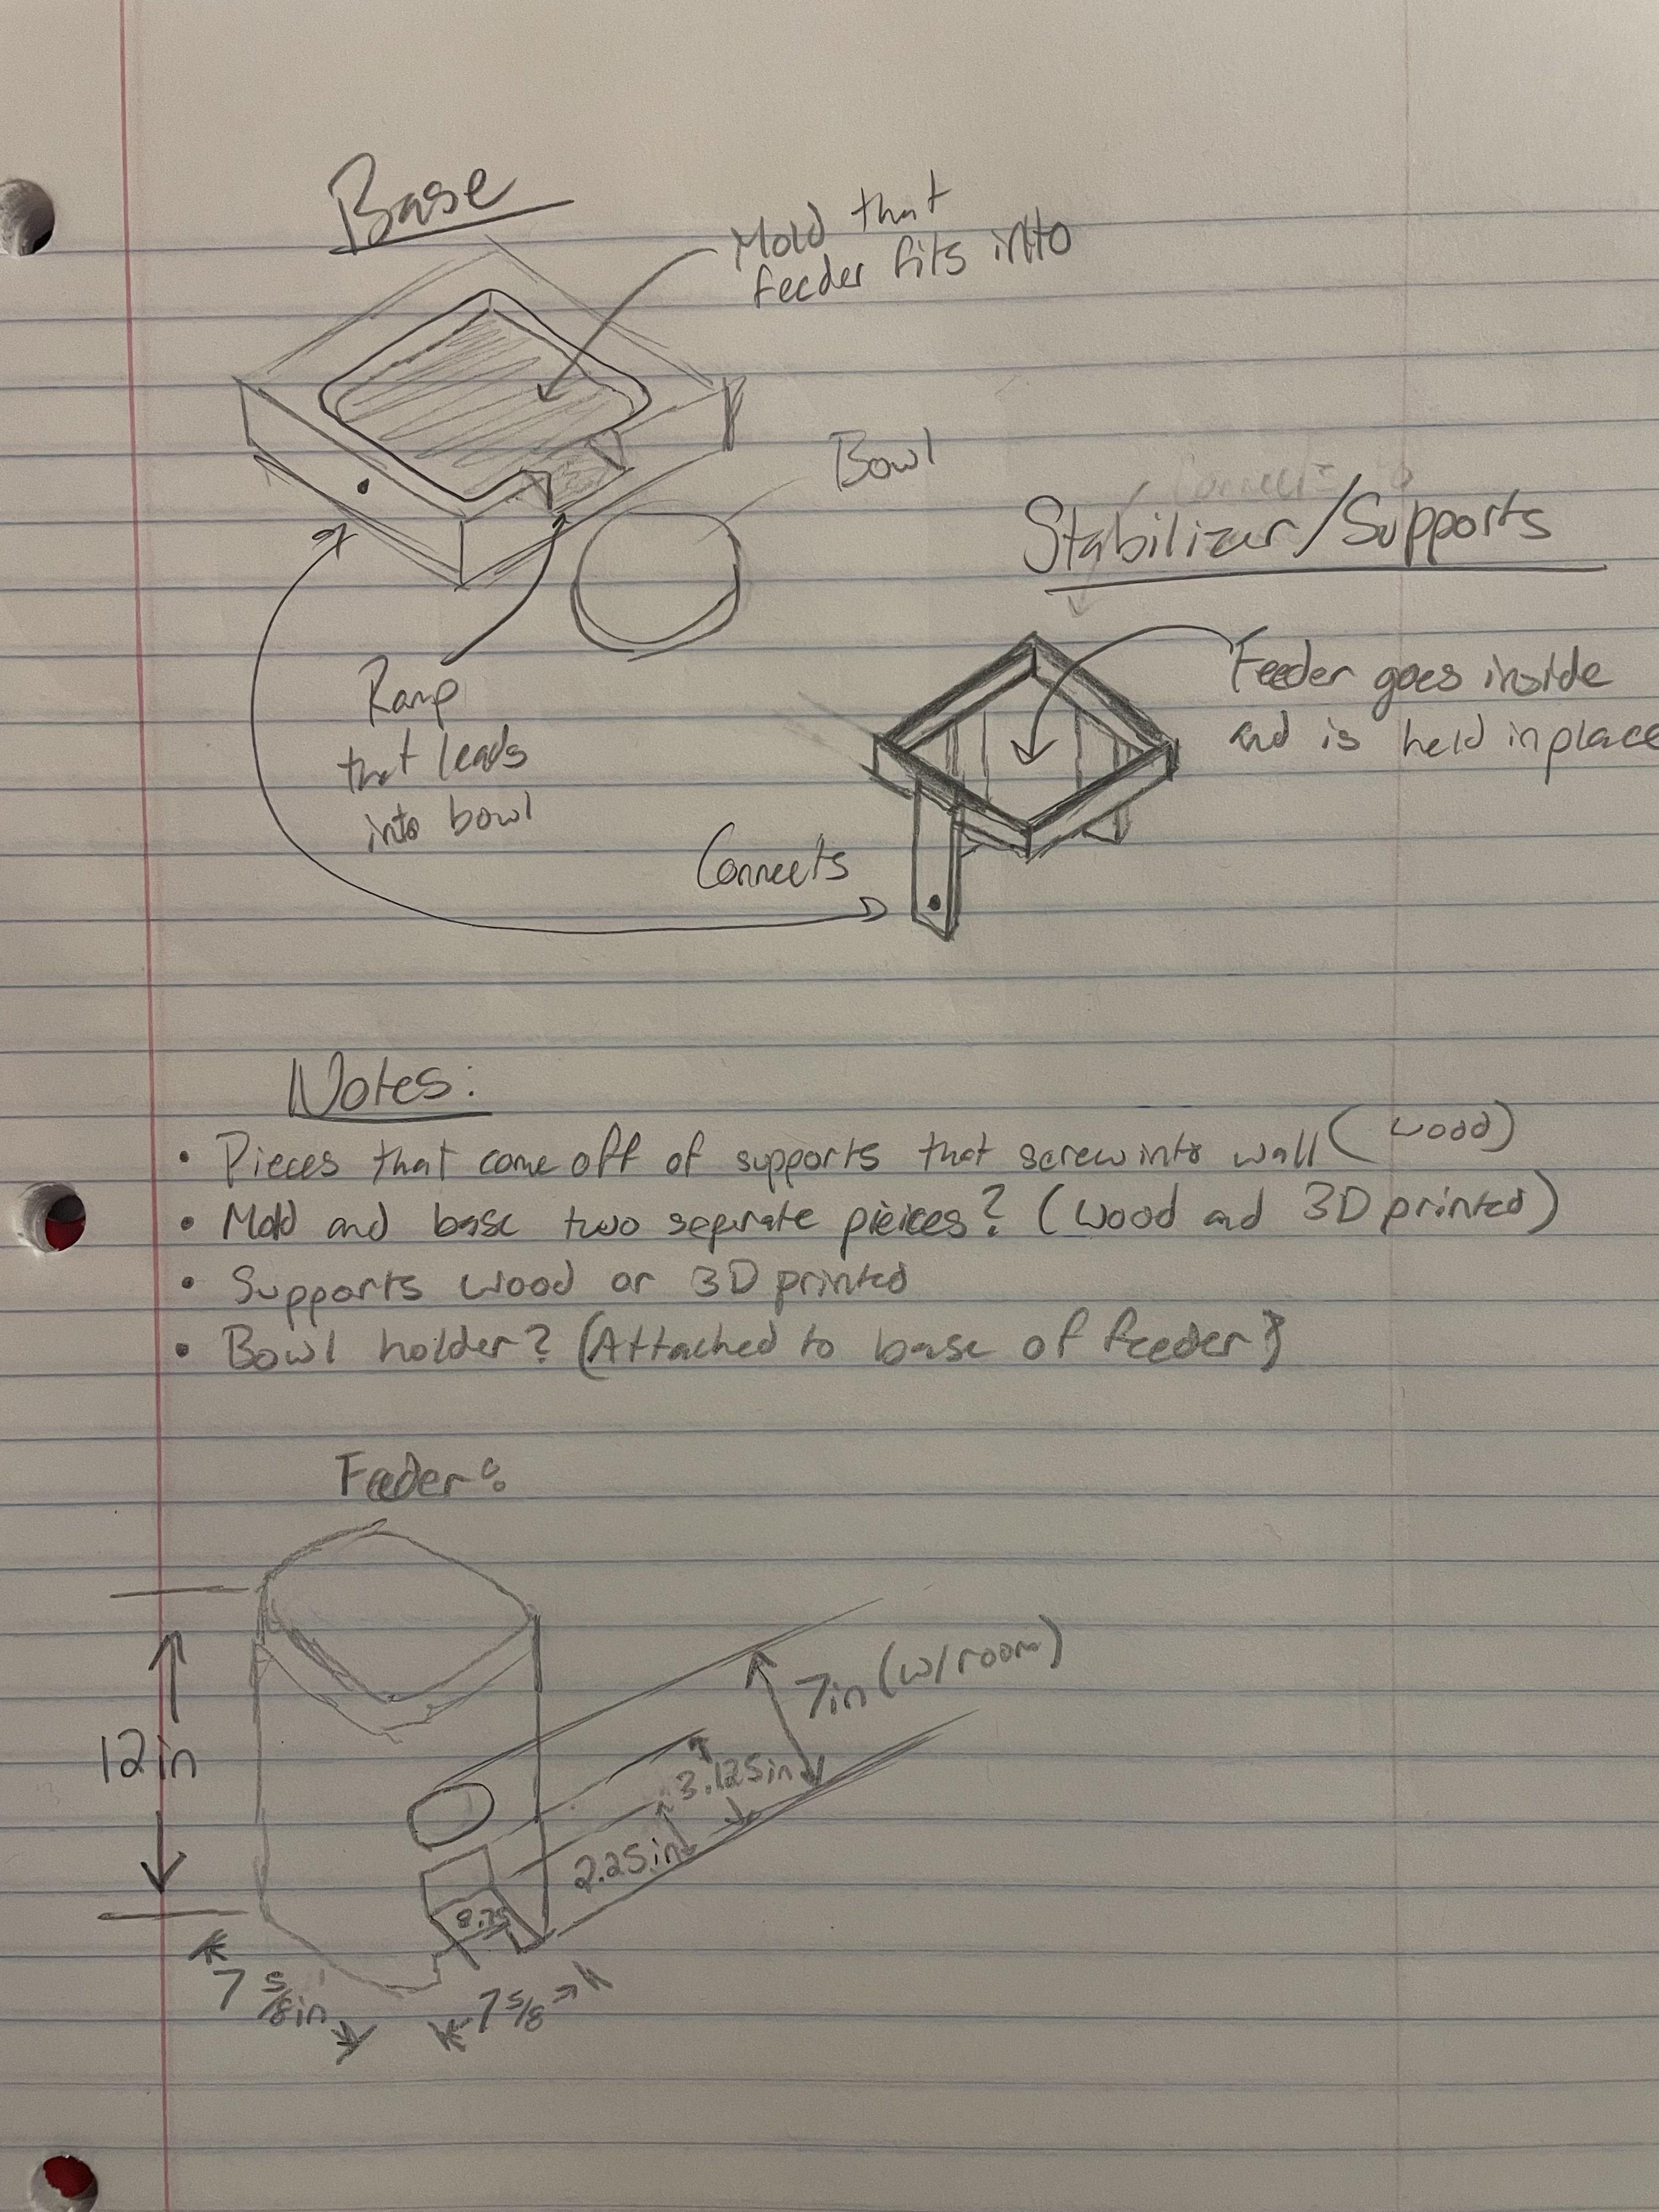 Base
Mold that
feeder fits into
Bowl
Stabilizer/Supports
Feeder goes inside
and is held in place
Ramp
that leads
into bowl
Connects
Notes:
• Pieces that come off of supports that screw into wall (wood)
• Mold and base two seperate pieices? (Wood and 3D printed)
• Supports wood or 3D printed
• Bowl holder? (Attached to base of feeder?)
Feeder:
12in
7in (w/room)
3.125in
2.25in
7 5/8in
7 5/8